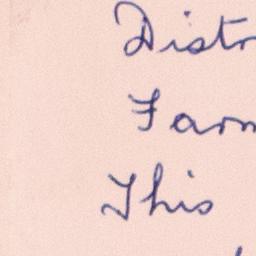 Distr
Farm
This